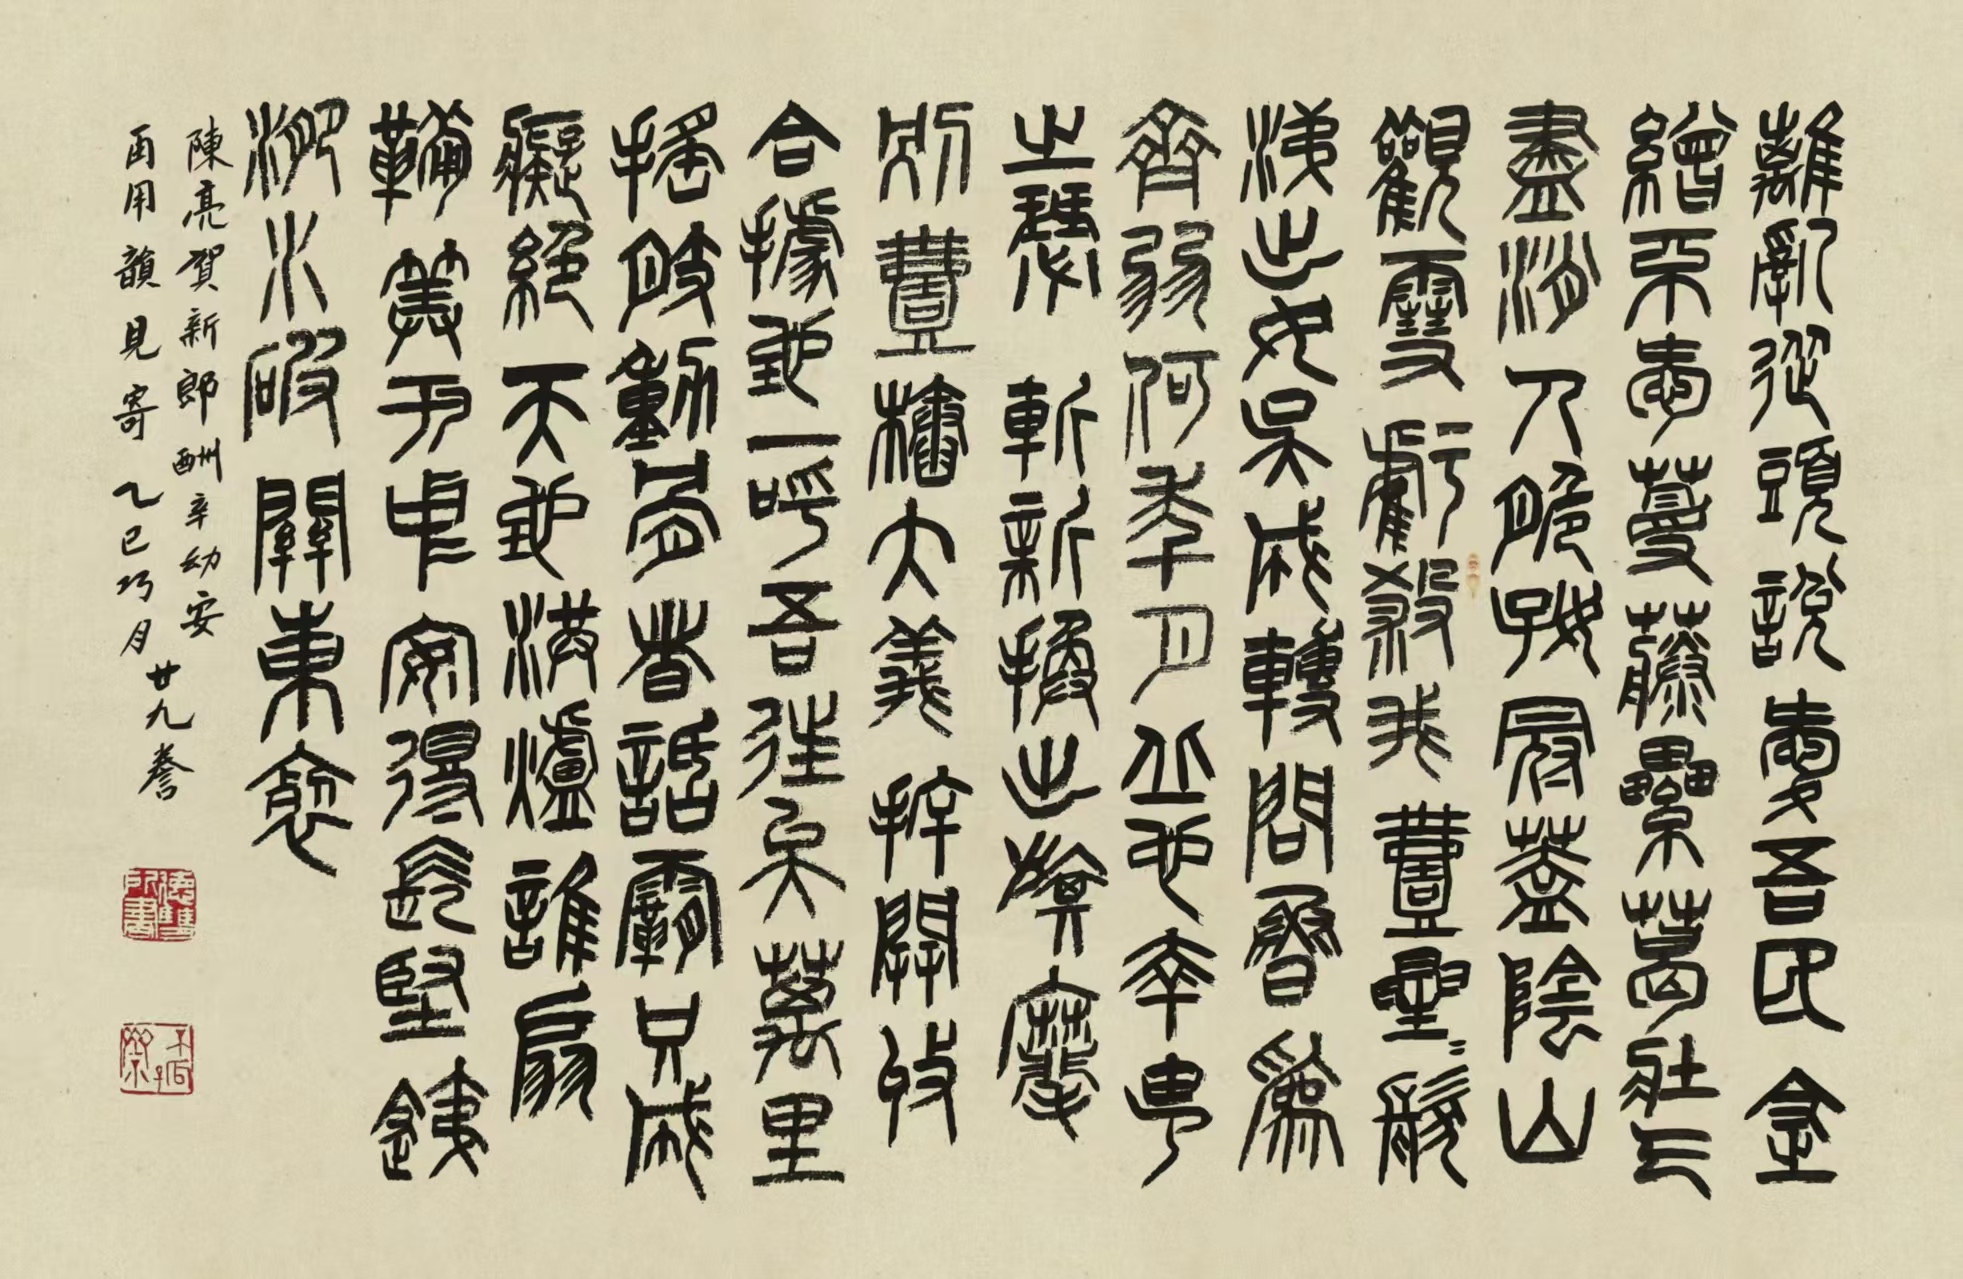 離亂從頭說愛吾民金
繒不愛蔓藤纍葛壯气
盡消人脆好冠蓋陰山
觀雪虧殺我壹星〻髮
涕出女吳成轉問魯為
齊弱何年月丘也幸由
之瑟 斬新換出旗麾
別壹樁大義拆開收
合據地一呼吾往矣萬里
搖肢動骨者話霸只成
癡絕天地洪爐誰扇
鞴算于中安得長堅鐵
淝水破關東裂
陳亮賀新郎酬辛幼安
再用韻見寄 乙巳巧月
廿九謄